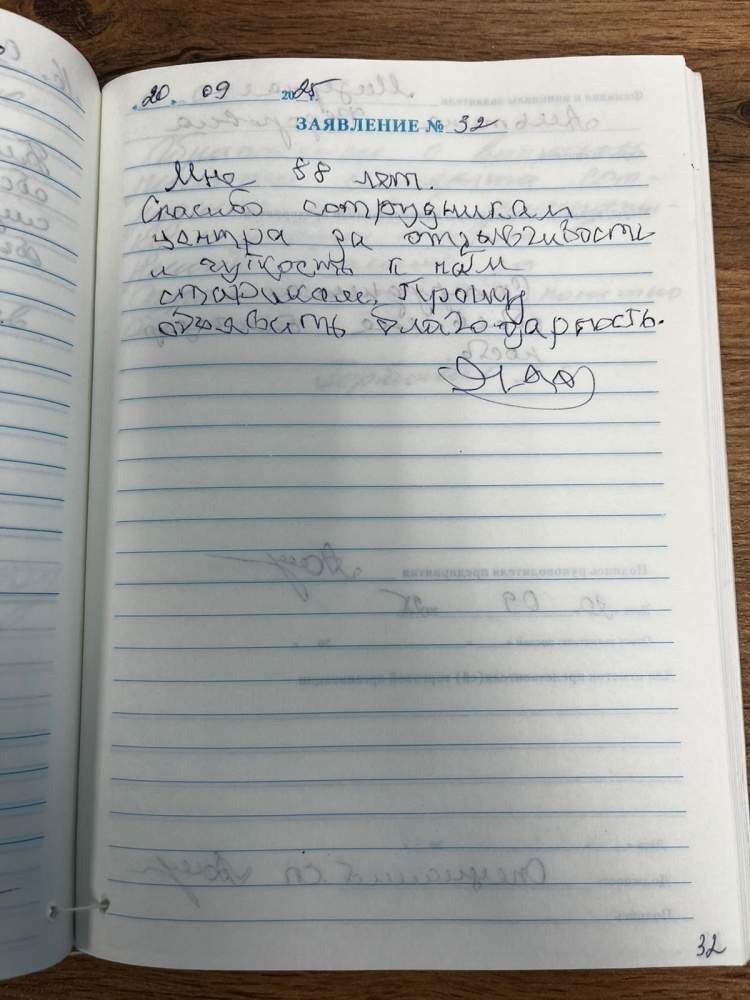 20. 09 2025
ЗАЯВЛЕНИЕ № 32
Мне 88 лет.
Спасибо сотрудникам
центра за отзывчивость
и чуткость к нам
старикам. Прошу
объявить благодарность.
32